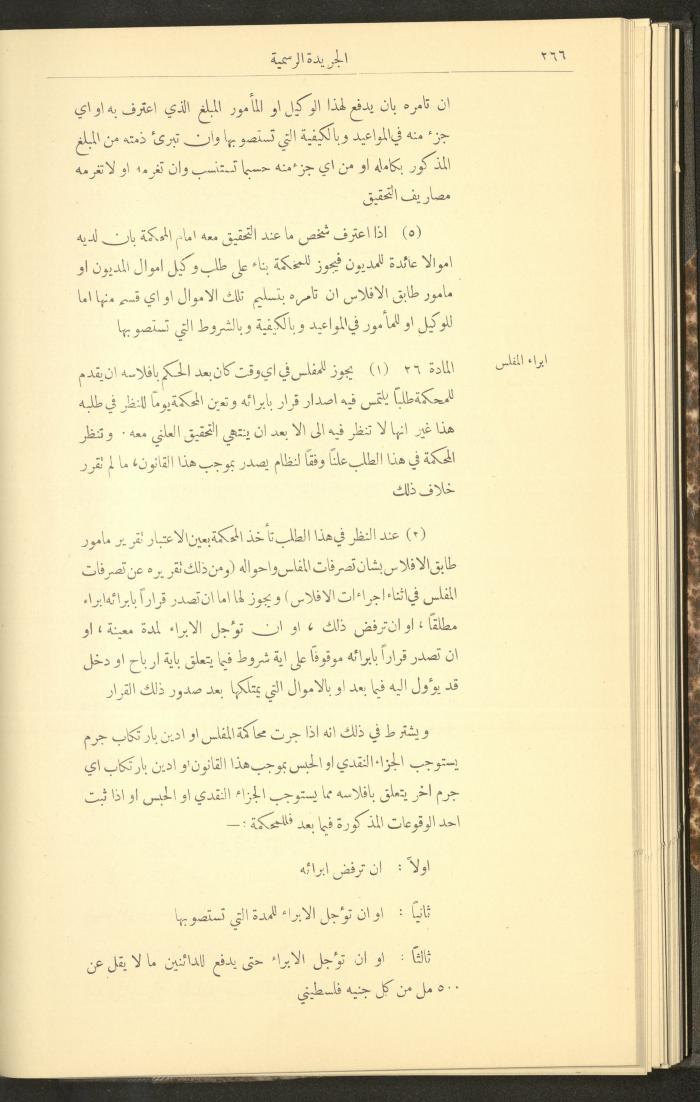 ٢٦٦
الجريدة الرسمية
ان تامره بان يدفع لهذا الوكيل او المأمور المبلغ الذي اعترف به او اي
جزء منه في المواعيد وبالكيفية التي تستصوبها وان تبرئ ذمته من المبلغ
المذكور بكامله او من اي جزء منه حسبما تستنسب وان تغرمه او لا تغرمه
مصاريف التحقيق
(٥) اذا اعترف شخص ما عند التحقيق معه امام المحكمة بان لديه
اموالا عائدة للمديون فيجوز للمحكمة بناء على طلب وكيل اموال المديون او
مامور طابق الافلاس ان تامره بتسليم تلك الاموال او اي قسم منها اما
للوكيل او للمأمور في المواعيد وبالكيفية وبالشروط التي تستصوبها
ابراء المفلس
المادة ٢٦ (١) يجوز للمفلس في اي وقت كان بعد الحكم بافلاسه ان يقدم
للمحكمة طلبًا يلتمس فيه اصدار قرار بابرائه وتعين المحكمة يومًا للنظر في طلبه
هذا غير انها لا تنظر فيه الى الا بعد ان ينتهي التحقيق العلني معه . وتنظر
المحكمة في هذا الطلب علنًا وفقًا لنظام يصدر بموجب هذا القانون، ما لم تقرر
خلاف ذلك
(٢) عند النظر في هذا الطلب تأخذ المحكمة بعين الاعتبار تقرير مامور
طابق الافلاس بشان تصرفات المفلس واحواله (ومن ذلك تقريره عن تصرفات
المفلس في اثناء اجراءات الافلاس) ويجوز لها اما ان تصدر قرارًا بابرائه ابراء
مطلقًا ، او ان ترفض ذلك ، او ان تؤجل الابراء لمدة معينة ، او
ان تصدر قرارًا بابرائه موقوفًا على اية شروط فيما يتعلق باية ارباح او دخل
قد يؤول اليه فيما بعد او بالاموال التي يمتلكها بعد صدور ذلك القرار
ويشترط في ذلك انه اذا جرت محاكمة المفلس او ادين بارتكاب جرم
يستوجب الجزاء النقدي او الحبس بموجب هذا القانون او ادين بارتكاب اي
جرم اخر يتعلق بافلاسه مما يستوجب الجزاء النقدي او الحبس او اذا ثبت
احد الوقوعات المذكورة فيما بعد فللمحكمة :—
اولاً : ان ترفض ابرائه
ثانيًا : او ان تؤجل الابراء للمدة التي تستصوبها
ثالثًا : او ان تؤجل الابراء حتى يدفع للدائنين ما لا يقل عن
٥٠٠ مل من كل جنيه فلسطيني